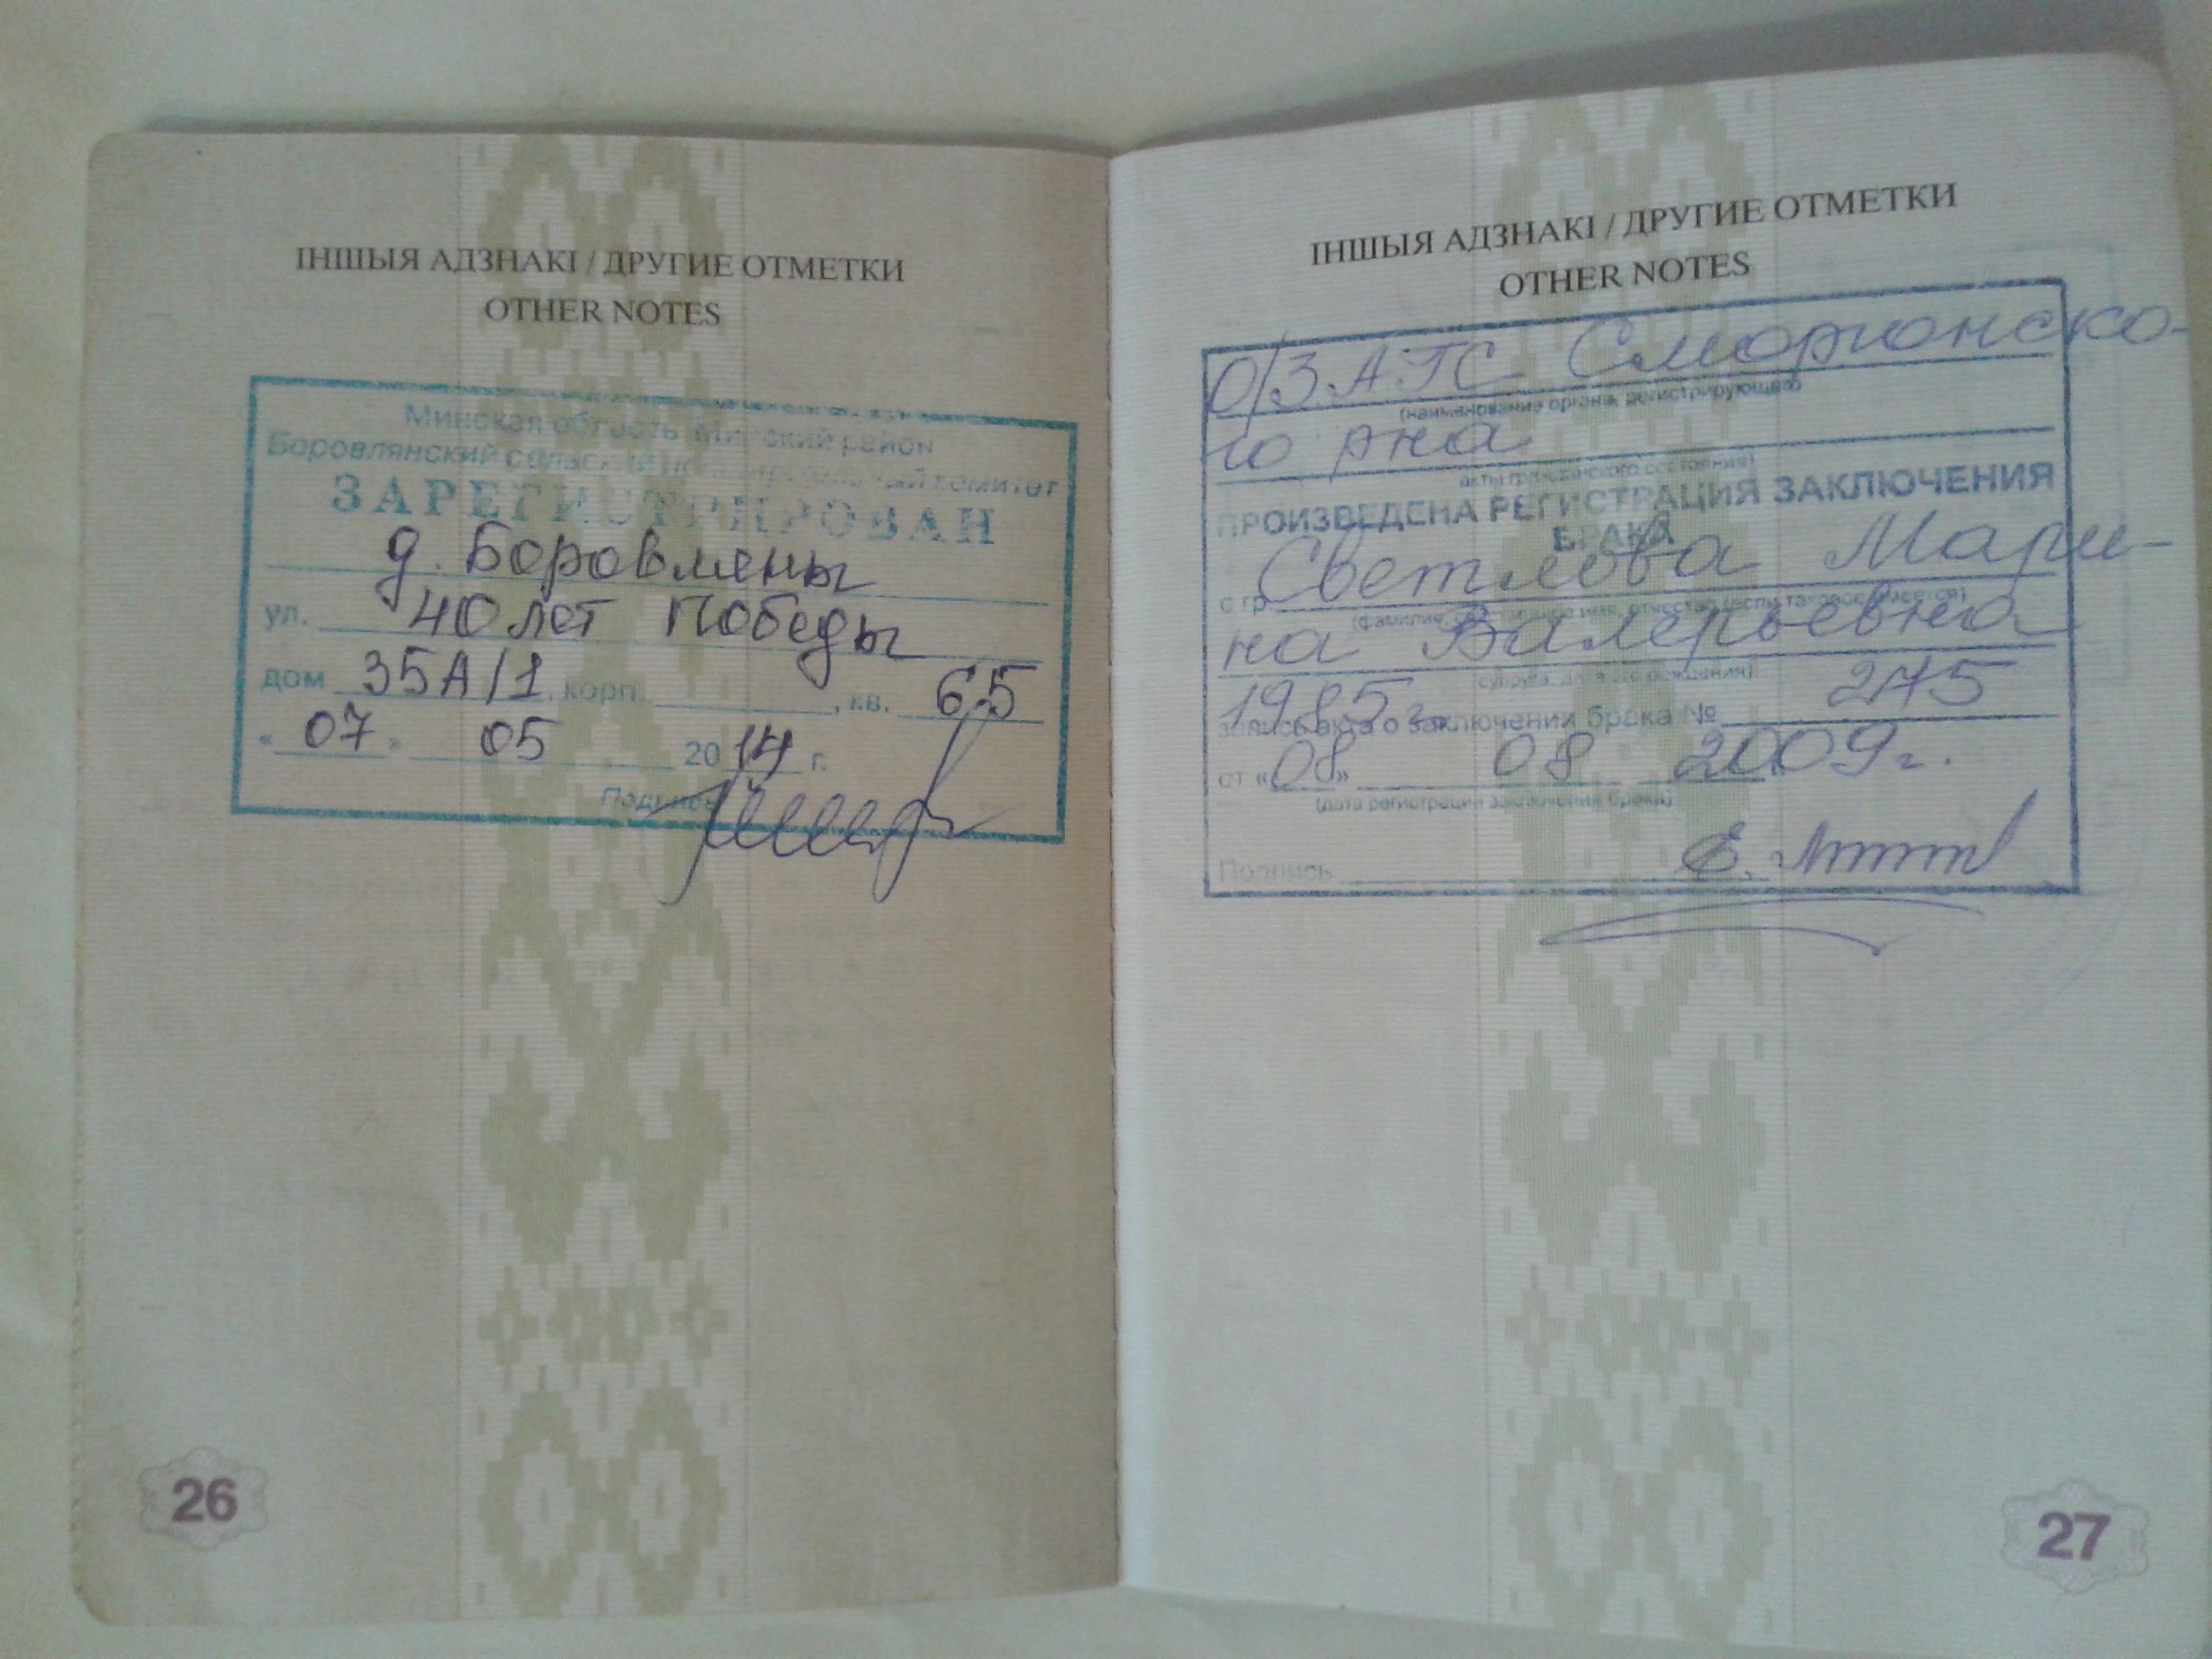 ІНШЫЯ АДЗНАКІ / ДРУГИЕ ОТМЕТКИ
OTHER NOTES
Минская область Минский район
Боровлянский сельский исполнительный комитет
ЗАРЕГИСТРИРОВАН
д. Боровляны
ул. 40 лет Победы
дом 35А/1 корп. , кв. 65
« 07 » 05 20 14 г.
Подпись
26
ІНШЫЯ АДЗНАКІ / ДРУГИЕ ОТМЕТКИ
OTHER NOTES
О/ЗАГС Сморгонско-
(наименование органа, регистрирующего
го рна
акты гражданского состояния)
ПРОИЗВЕДЕНА РЕГИСТРАЦИЯ ЗАКЛЮЧЕНИЯ
БРАКА
с гр. Светлова Мари-
(фамилия, собственное имя, отчество (если таковое имеется)
на Валерьевна
супруга, дата его рождения)
1985 г.
запись акта о заключении брака № 275
от «08» 08 2009 г.
(дата регистрации заключения брака)
Подпись
27